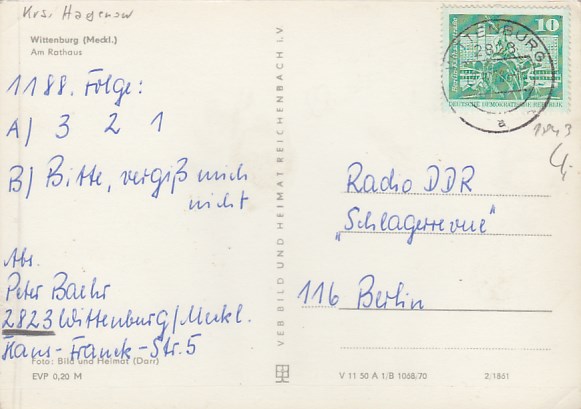 Krs. Hagenow
Wittenburg (Meckl.)
Am Rathaus
1188. Folge:
A) 3 2 1
B) Bitte, vergiß mich
nicht
Abs.
Peter Baehr
2823 Wittenburg/Meckl.
Hans-Franck-Str. 5
Foto: Bild und Heimat (Darr)
EVP 0,20 M
VEB BILD UND HEIMAT REICHENBACH I. V.
10
DEUTSCHE DEMOKRATISCHE REPUBLIK
Radio DDR
„Schlagerrevue"
116 Berlin
V 11 50 A 1/B 1068/70
2/1861